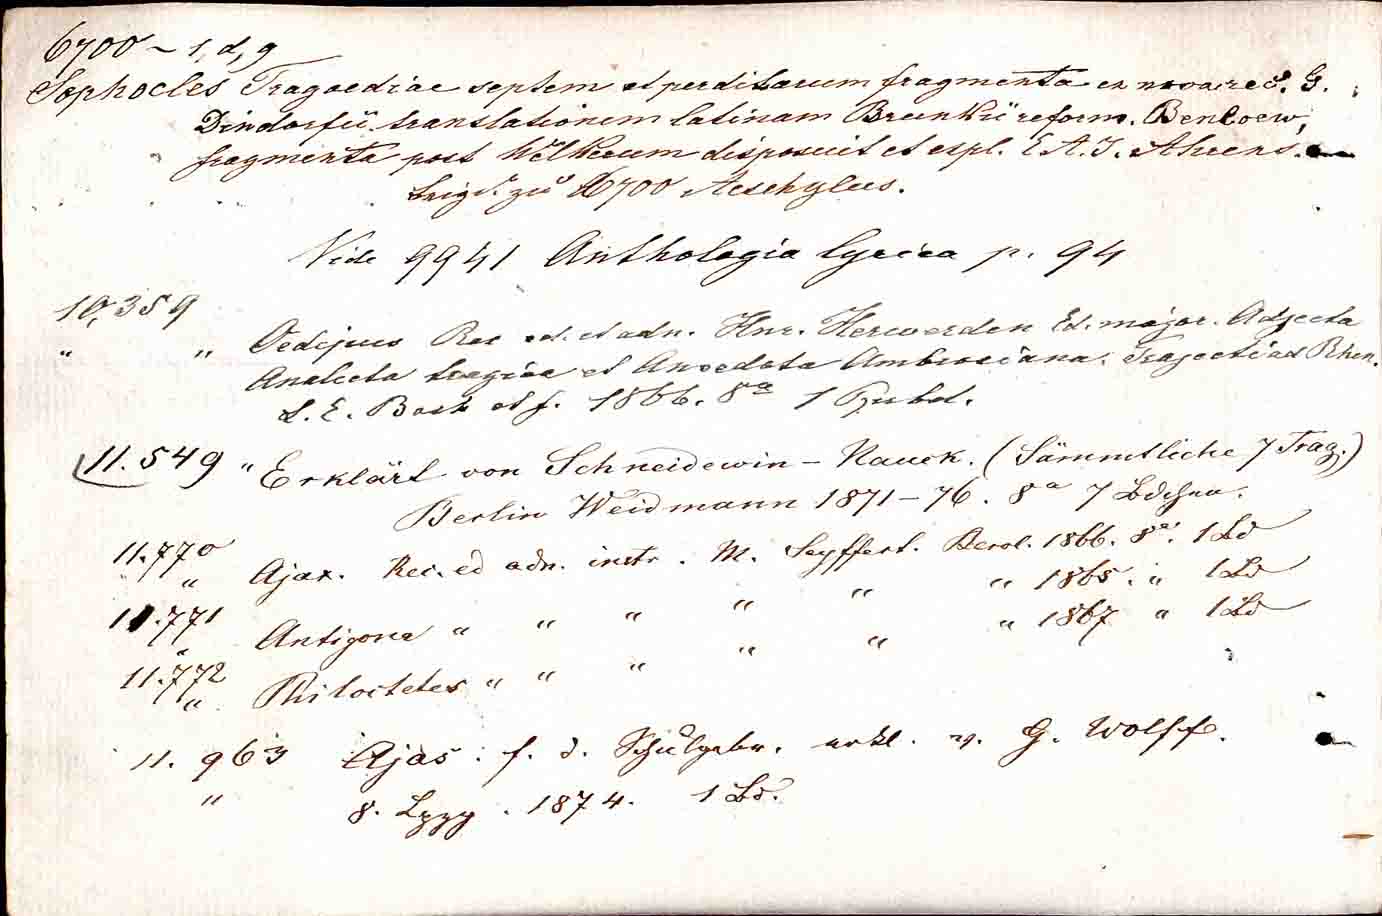 6700 ~ 1, d, g
Sophocles Tragoediae septem et perditarum fragmenta ex nova rec. G.
Dindorfii translationem latinam Brunkii reform. Benloew,
fragmenta post Welkerum disposuit et expl. E. A. J. Ahrens.
beigd. zu 6700 Aeschylus.
Vide 9941 Anthologia lyrica p. 94
10,359
" " Oedipus Rex ed. et adn. Hnr. Herwerden Ed. major. Adjecta
Analecta tragica et Anecdota Ambrosiana. Trajecti ad Rhen.
L. E. Bosk et f. 1866. 8a 1
11.549 " Erklärt von Schneidewin - Nauck. (Sämmtliche 7 Trag.)
Berlin Weidmann 1871-76. 8a 7 Bdchen.
11.770
" Ajax. Rec. ed adn. instr. M. Seyffert. Berol. 1866. 8a. 1 Bd
11.771
" Antigona " " " " " " 1865. " 1 Bd
11.772
" Philoctetes " " " " " " 1867 " 1 Bd
11.963 Ajas. f. d. Schulgebr. erkl. v. G. Wolff.
" 8. Lpzg. 1874. 1 Bd.